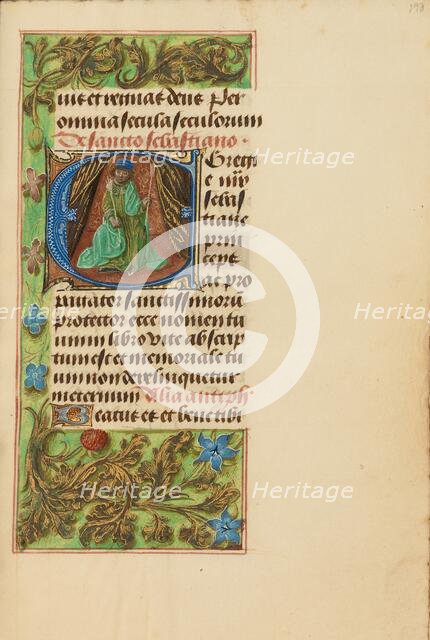 198
uiuit et regnat deus Per
omnia secula seculorum
De sancto sebastiano
Egregi
e mr̄
sebas
tiane
prin
ceps
ac pro
protector ecce nomen tu
um in libro vite abscrip
tum est et memoriale tu
um non derelinquetur
in eternum Alia antiph
Beatus es et bene tibi
Heritage
Heritage
Heritage
Heritage
Heritage
Heritage